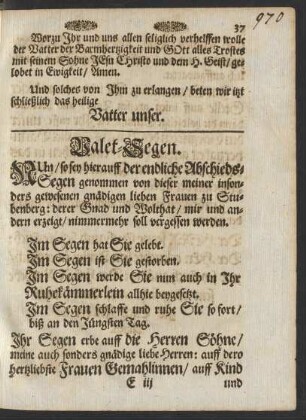 37
970
Worzu Ihr und uns allen seliglich verhelffen wolle
der Vatter der Barmhertzigkeit und GOtt alles Trostes
mit seinem Sohne JEsu CHristo und dem H. Geist/ ge-
lobet in Ewigkeit/ Amen.
Und solches von Ihm zu erlangen/ beten wir itzt
schließlich das heilige
Vatter unser.
Valet-Segen.
NUn/ so sey hierauff der endliche Abschieds-
Segen genommen von dieser meiner inson-
ders gewesenen gnädigen lieben Frauen zu Stu-
benberg: derer Gnad und Wolthat/ mir und an-
dern erzeigt/ nimmermehr soll vergessen werden.
Im Segen hat Sie gelebt.
Im Segen ist Sie gestorben.
Im Segen werde Sie nun auch in Ihr
Ruhekämmerlein allhie beygesetzt.
Im Segen schlaffe und ruhe Sie so fort/
biß an den Jüngsten Tag.
Ihr Segen erbe auff die Herren Söhne/
meine auch sonders gnädige liebe Herren: auff dero
hertzliebste Frauen Gemahlinnen/ auff Kind
E iij
und